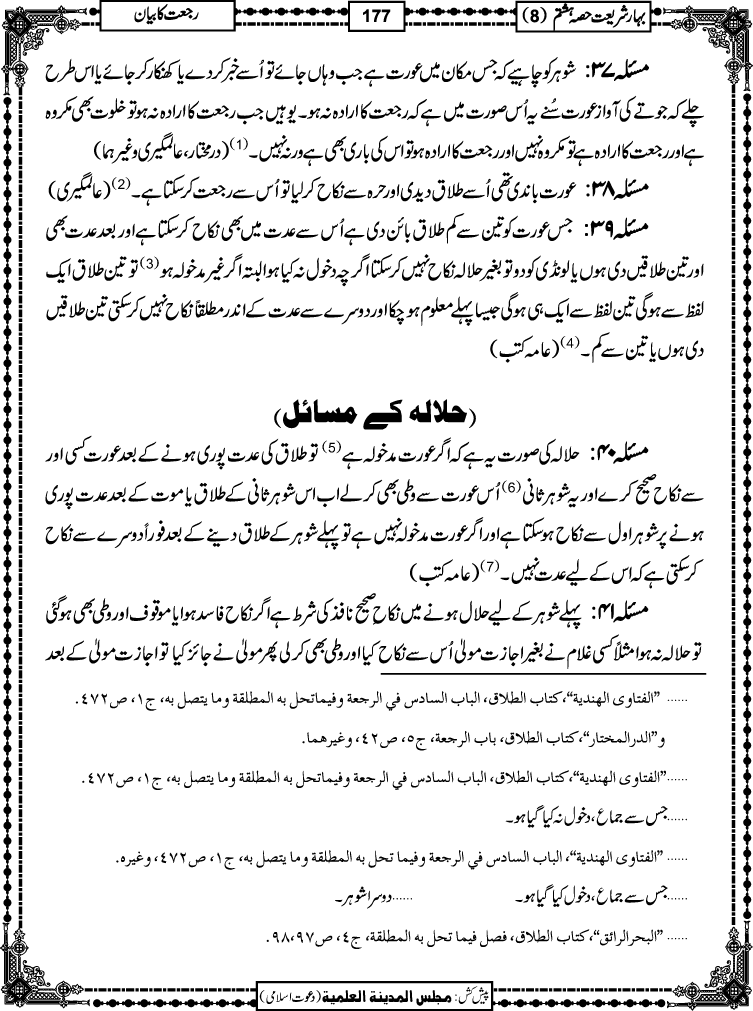 بہار شریعت حصہ ہشتم (8)
177
رجعت کا بیان
مسئلہ ۳۷: شوہر کو چاہیے کہ جس مکان میں عورت ہے جب وہاں جائے تو اُسے خبر کر دے یا کھنکار کر جائے یا اس طرح
چلے کہ جوتے کی آواز عورت سُنے یہ اُس صورت میں ہے کہ رجعت کا ارادہ نہ ہو۔ یوہیں جب رجعت کا ارادہ نہ ہو تو خلوت بھی مکروہ
ہے اور رجعت کا ارادہ ہے تو مکروہ نہیں اور رجعت کا ارادہ ہو تو اس کی باری بھی ہے ورنہ نہیں۔(1) (درمختار، عالمگیری وغیرہما)
مسئلہ ۳۸: عورت باندی تھی اُسے طلاق دیدی اور حرہ سے نکاح کر لیا تو اُس سے رجعت کر سکتا ہے۔(2) (عالمگیری)
مسئلہ ۳۹: جس عورت کو تین سے کم طلاق بائن دی ہے اُس سے عدت میں بھی نکاح کر سکتا ہے اور بعد عدت بھی
اور تین طلاقیں دی ہوں یا لونڈی کو دو تو بغیر حلالہ نکاح نہیں کر سکتا اگرچہ دخول نہ کیا ہو البتہ اگر غیر مدخولہ ہو(3) تو تین طلاق ایک
لفظ سے ہو گی تین لفظ سے ایک ہی ہو گی جیسا پہلے معلوم ہو چکا اور دوسرے سے عدت کے اندر مطلقاً نکاح نہیں کر سکتی تین طلاقیں
دی ہوں یا تین سے کم۔(4) (عامہ کتب)
(حلالہ کے مسائل)
مسئلہ ۴۰: حلالہ کی صورت یہ ہے کہ اگر عورت مدخولہ ہے(5) تو طلاق کی عدت پوری ہونے کے بعد عورت کسی اور
سے نکاح صحیح کرے اور یہ شوہر ثانی(6) اُس عورت سے وطی بھی کر لے اب اس شوہر ثانی کے طلاق یا موت کے بعد عدت پوری
ہونے پر شوہر اول سے نکاح ہو سکتا ہے اور اگر عورت مدخولہ نہیں ہے تو پہلے شوہر کے طلاق دینے کے بعد فوراً دوسرے سے نکاح
کر سکتی ہے کہ اس کے لیے عدت نہیں۔(7) (عامہ کتب)
مسئلہ ۴۱: پہلے شوہر کے لیے حلال ہونے میں نکاح صحیح نافذ کی شرط ہے اگر نکاح فاسد ہوا یا موقوف اور وطی بھی ہو گئی
تو حلالہ نہ ہوا مثلاً کسی غلام نے بغیر اجازت مولیٰ اُس سے نکاح کیا اور وطی بھی کر لی پھر مولیٰ نے جائز کیا تو اجازت مولیٰ کے بعد
...... "الفتاوى الهندية"، كتاب الطلاق، الباب السادس في الرجعة وفيماتحل به المطلقة وما يتصل به، ج١، ص٤٧٢.
و"الدرالمختار"، كتاب الطلاق، باب الرجعة، ج٥، ص٤٢، وغيرهما.
......"الفتاوى الهندية"، كتاب الطلاق، الباب السادس في الرجعة وفيماتحل به المطلقة وما يتصل به، ج١، ص٤٧٢.
......جس سے جماع، دخول نہ کیا گیا ہو۔
...... "الفتاوى الهندية"، الباب السادس في الرجعة وفيما تحل به المطلقة وما يتصل به، ج١، ص٤٧٢، وغيره.
......جس سے جماع، دخول کیا گیا ہو۔ ......دوسرا شوہر۔
...... "البحرالرائق"، كتاب الطلاق، فصل فيما تحل به المطلقة، ج٤، ص٩٧،٩٨.
پیش کش: مجلس المدینة العلمیة (دعوت اسلامی)